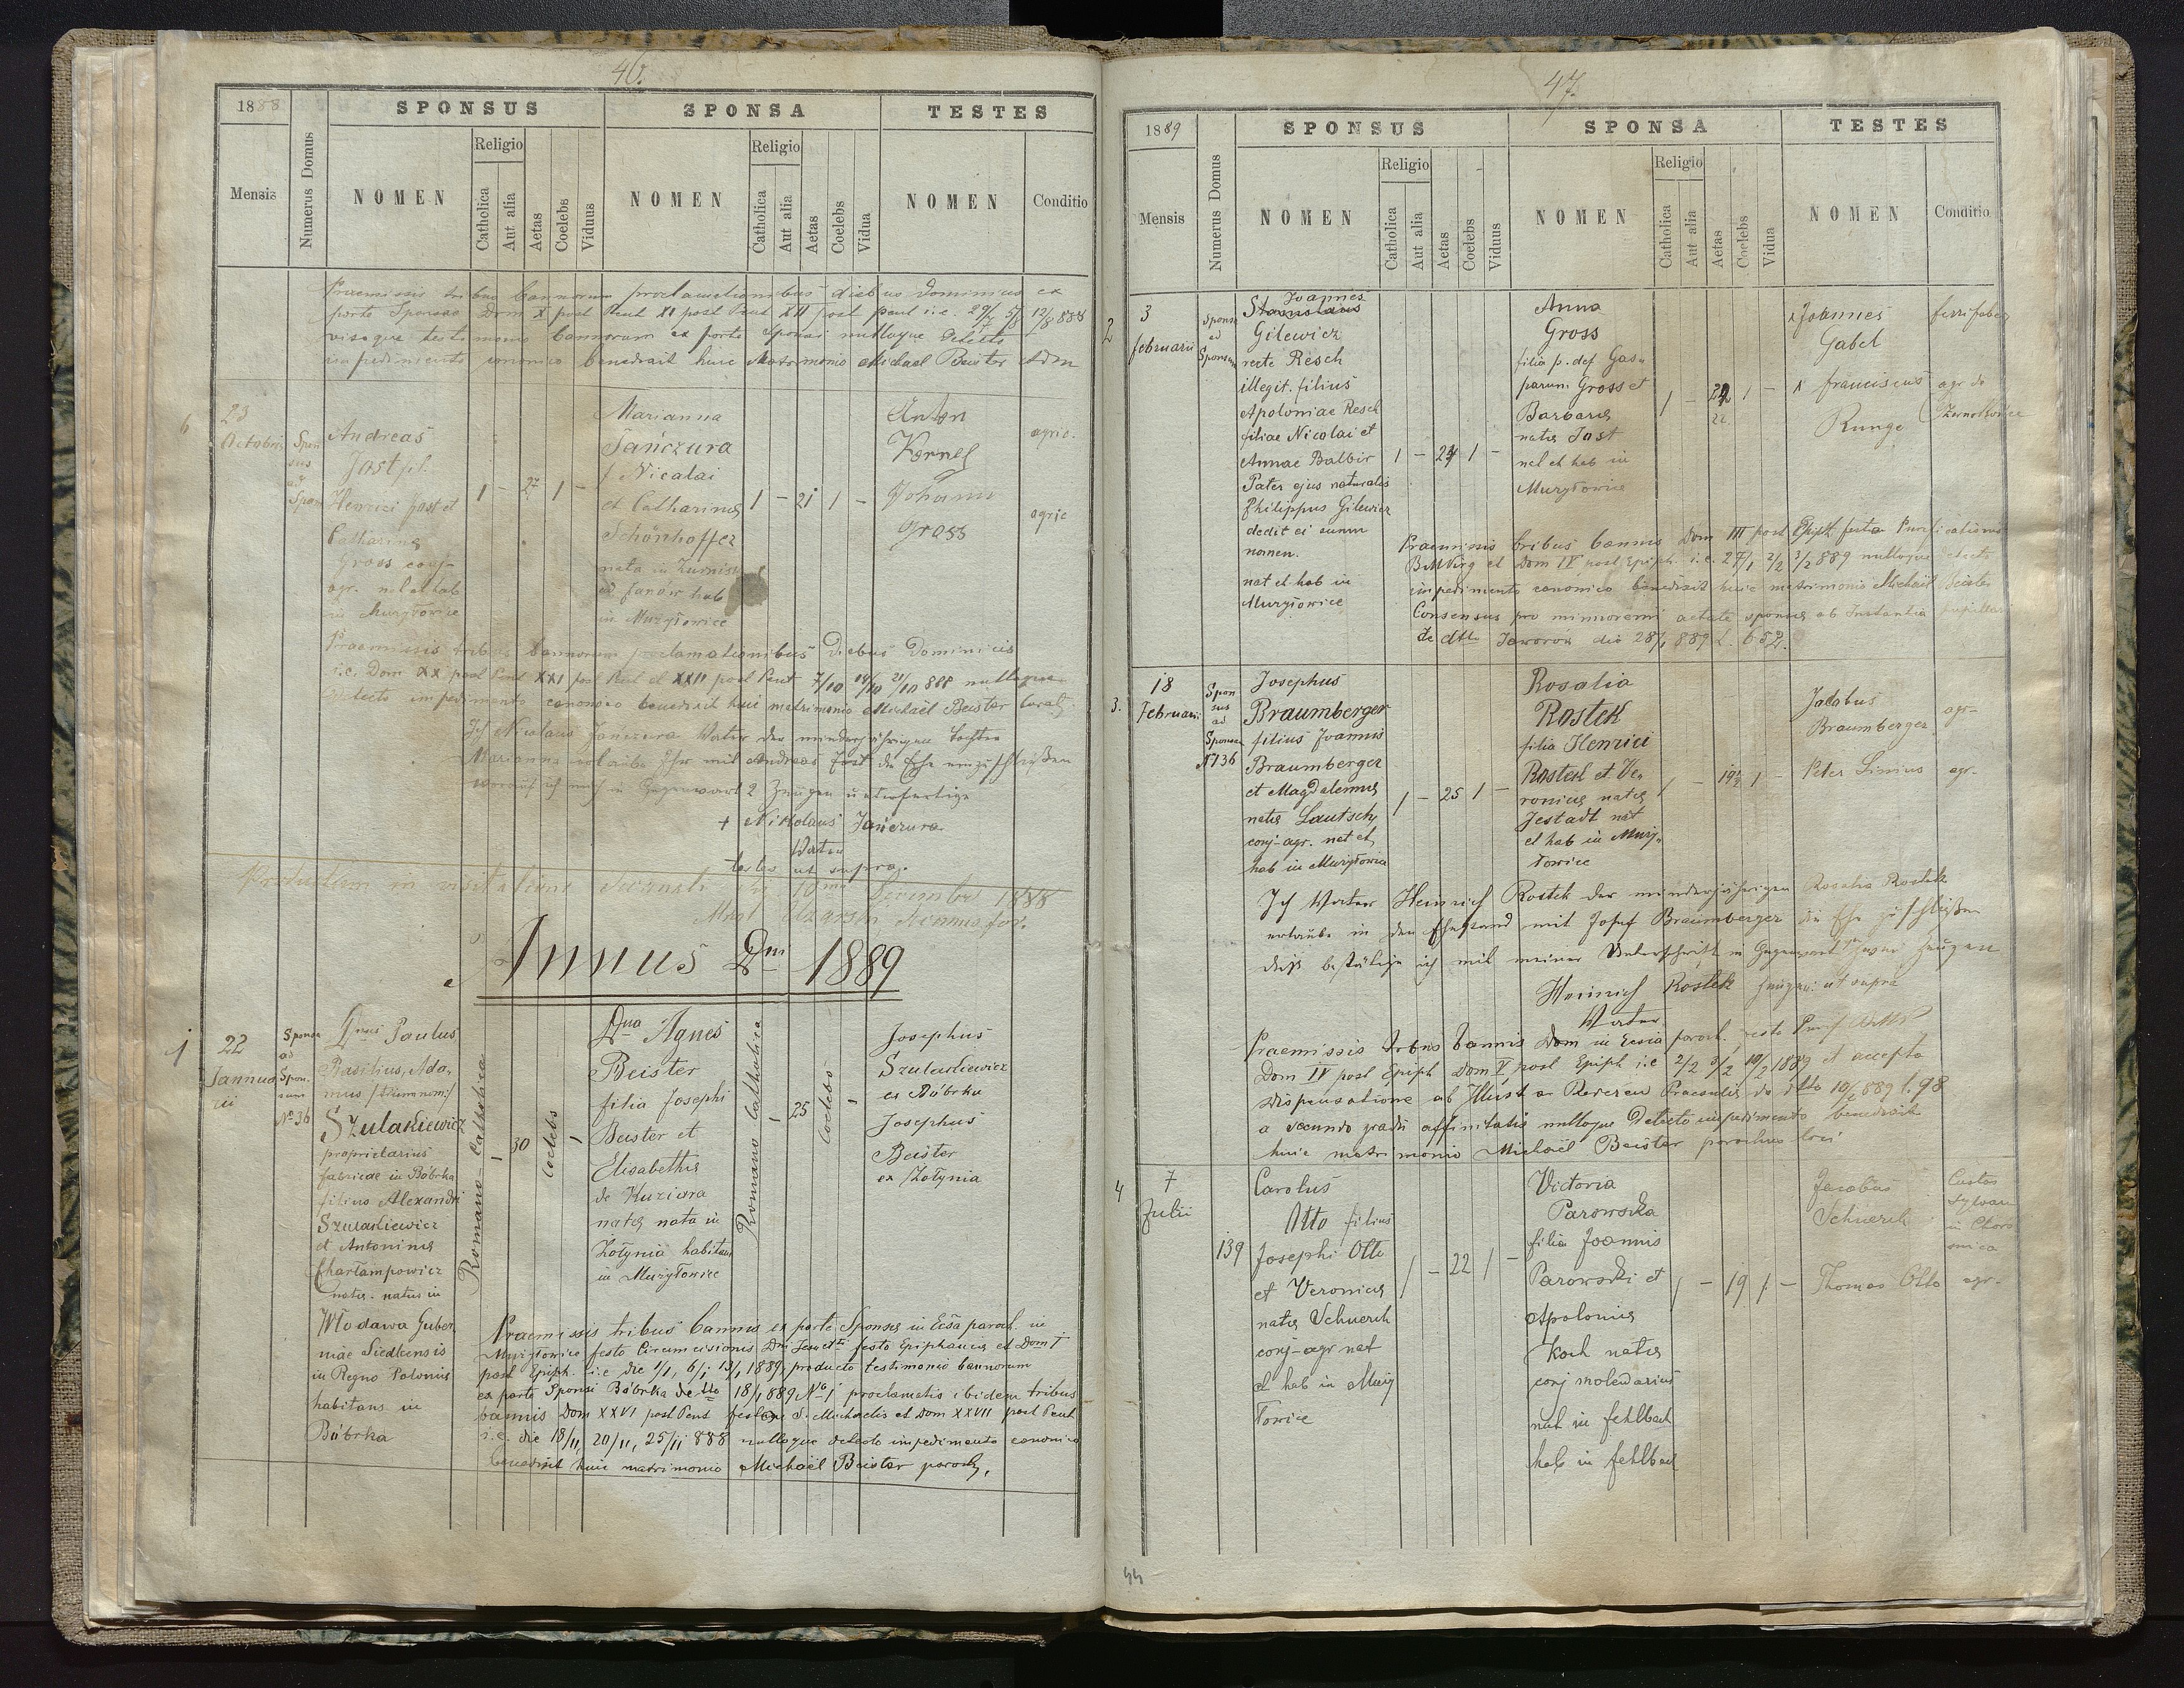 46.
1888
SPONSUS
SPONSA
TESTES
Mensis
Numerus Domus
NOMEN
Religio
Catholica
Aut alia
Aetas
Coelebs
Viduus
NOMEN
Religio
Catholica
Aut alia
Aetas
Coelebs
Vidua
NOMEN
Conditio
Praemissis tribus bannorum proclamationibus diebus Dominicis ex
parte Sponsae Dom X post Pent XI post Pent XII post Pent i.e. 29/7 5/8 12/8 888
visoque testimonio bannorum ex parte Sponsi nulloque detecto
impedimento canonico benedixit huic Matrimonio Michael Beister
6
23
Octobris
Spon
sus
ad
Spon
Andreas
Jost fil.
Henrici Jost et
Catharinae
Gross conj-
agr. nat et hab
in Murzyłowice
1 - 27 1 -
Marianna
Jańczura
f Nicolai
et Catharinae
Schönhoffer
nata in
ad Janów hab
in Mużyłowice
1 - 21 1 -
Anton
Kornel
agric.
Johann
Gross
agric
Praemissis tribus bannorum proclamationibus diebus Dominicis
i.e. Dom XX post Pent XXI post Pent et XXII post Pent 7/10 14/10 21/10 888 nulloque
detecto impedimento canonico benedixit huic matrimonio Michaël Beister
Ich Nicolaus Jańczura Vater der minderjährigen Tochter
Marianna erlaube Ihr mit Andreas Jost die Ehe einzuschließen
worauf ich mich in Gegenwart 2 Zeugen unterfertige
+ Nikolaus Jańczura
Vater
testes ut supra.
Productum in visitatione
10ma Decembris 1888
Annus Dni 1889
1
22
Januarii
Sponsa
ad
Spon.
sum
No 36
Dnus Paulus
Basilius, Ada,
mus /trium nom:/
Szulakiewicz
proprietarius
fabricae in Bóbrka
filius Alexandri
Szulakiewicz
et Antoninae
Charłampowicz
natae. natus in
Włodawa Guber,
niae Siedlcensis
in Regno Poloniae
habitans in
Bóbrka
Romano-Catholica
1
30
Coelebs
1
Dna Agnes
Beister
filia Josephi
Beister et
Elisabethae
de Kuziora
natae nata in
Żołynia habitans
in Mużyłowice
Romano Catholica
1
25
Coelebs
1
Josephus
Szulakiewicz
ex Bóbrka
Josephus
Beister
ex Żołynia
Praemissis tribus bannis ex parte Sponsae in Ecsia paroch. in
Mużyłowice festo Circumcisionis Dni festo Epiphaniae et Dom I
post Epiph. i.e. die 1/1, 6/1, 13/1 1889, producto testimonio bannorum
ex parte Sponsi Bóbrka de dto 18/1 889 No 1 proclamatis ibidem tribus
bannis Dom XXVI post Pent festoque S. Michaelis et Dom XXVII post Pent
i.e. die 18/11, 20/11, 25/11 888 nulloque detecto impedimento canonico
benedixit huic matrimonio Michaël Beister paroch,
47.
1889
SPONSUS
SPONSA
TESTES
Mensis
Numerus Domus
NOMEN
Religio
Catholica
Aut alia
Aetas
Coelebs
Viduus
NOMEN
Religio
Catholica
Aut alia
Aetas
Coelebs
Vidua
NOMEN
Conditio
2
3
februarii
Sponsus
ad
Sponsam
Joannes
Stanislaus
Gilewicz
recte Resch
illegit. filius
Apoloniae Resch
filiae Nicolai et
Annae Balbir
Pater ejus naturalis
Philippus Gilewicz
dedit ei suum
nomen.
nat et hab in
Murzyłowice
1 - 24 1 -
Anna
Gross
filia p. def Gas-
parum Gross et
Barbarae
natae Jost
nat et hab in
Murzyłowice
1 - 22 1 -
22
Joannes
Gabel
ferrifaber
franciscus
Runge
agr de
Praemissis tribus bannis Dom III post Epiph festo Purificationis
BMVirg et Dom IV post Epiph. i.e. 27/1 2/2 3/2 889 nulloque detecto
impedimento canonico benedixit huic matrimonio Michaël Beister
Consensus pro minorenni aetate sponsae ab Instantia pupillari
de dto Jaworow die 28/1 889 L. 652.
3.
18
Februarii
Spon
sus
ad
Sponsam
N136
Josephus
Braumberger
filius Joannis
Braumberger
et Magdalenae
natae Lautsch
conj-agr. nat et
hab in Mużyłowice
1 - 25 1 -
Rosalia
Rostek
filia Henrici
Rostek et Ve,
ronicae natae
Jestadt nat
et hab in Muży-
łowice
1 - 19½ 1 -
Jacobus
Braumberger
agr-
Peter Linius
agr.
Ich Vater Heinrich Rostek der minderjährigen Rosalia Rostek
erlaube in den Ehestand mit Josef Braumberger die Ehe zu schließen
dieß bestätige ich mit meiner Unterschrift in Gegenwart zweier Zeugen
Heinrich Rostek Zeugen: ut supra
Vater
Praemissis tribus bannis Dom in Ecsia paroch. festo Purif BMV
Dom IV post Epiph Dom V post Epiph i.e 2/2 3/2 10/2 1889 et accepta
dispensatione ab Illust a Reveren Praesulis de dto 10/2 889 l. 98
a secundo gradu affinitatis nulloque detecto impedimento benedixit
huic matrimonio Michaël Beister parochus loci
4
7
Julii
139
Carolus
Otto filius
Josephi Otto
et Veronicae
natae Schuerch
conj-agr nat
et hab in Muży
łowice
1 - 22 1 -
Victoria
Parowska
filia Joannis
Parowski et
Apoloniae
Koch natae
conj molendarius
nat in fehlbach
hab in fehlbach
1 - 19 1 -
Jacobus
Schuerch
Custos
sylvarum
Thomas Otto
agr-
44